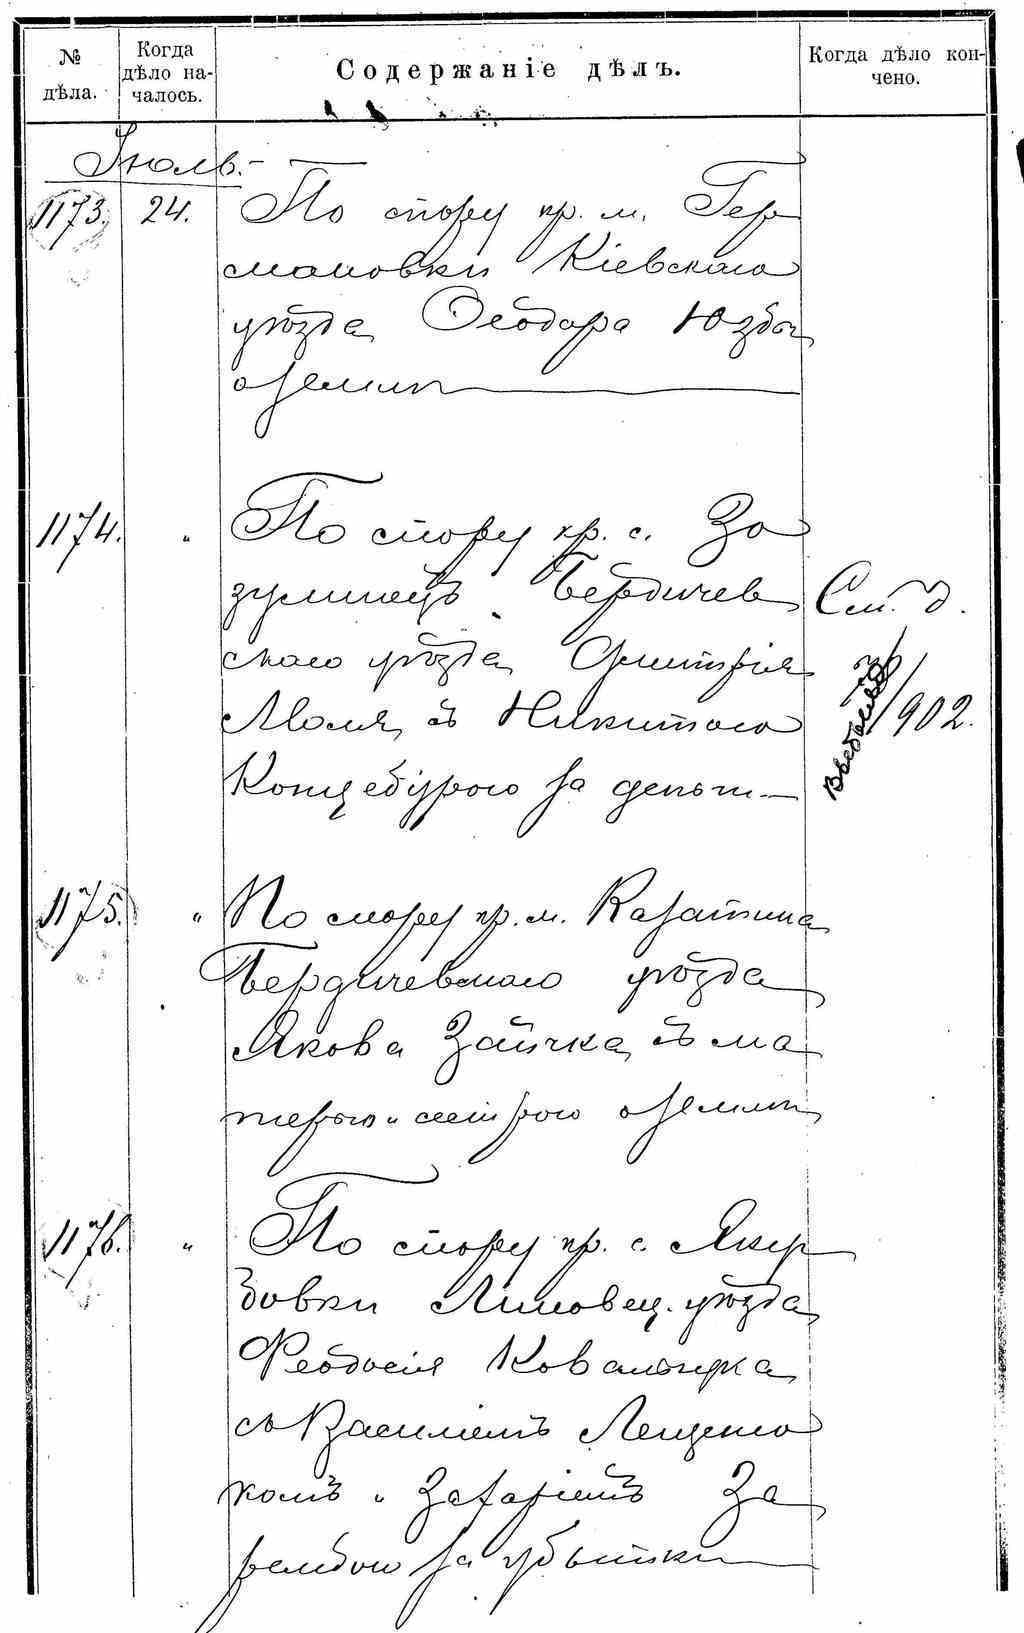 № дѣла.
Когда дѣло на-
чалось.
Содержаніе дѣлъ.
Когда дѣло кон-
чено.
Іюль.
1173. 24. По спору кр. м. Гер
мановки Кіевскаго
уѣзда Ѳеодора Юзвы
о землѣ
1174. " По спору кр. с. Зо
зулинецъ Бердичев
скаго уѣзда Дмитрія
Моля съ Никитою
Концебурою за деньги
См. д.
/902.
1175. " По спору кр. м. Казатина
Бердичевскаго уѣзда
Якова Зайчка съ ма
терью и сестрою о землѣ
1176. " По спору кр. с. Яку
бовки Липовец. уѣзда
Феодосія Ковальчука
съ Василіемъ Лещено
комъ и Захаріемъ За
рембою за убытки